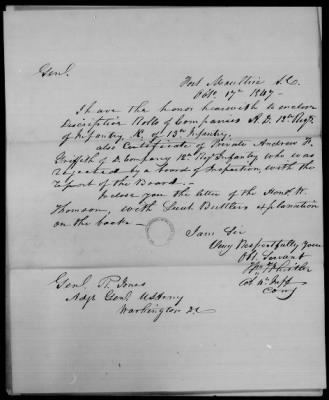 Genl.
Fort Moultrie S.C.
Octr 17th 1847
I have the honor herewith to enclose
Descriptive Rolls of Companies A. D. 12th Regt
of Infantry K. of 13th Infantry.
also Certificate of Private Andrew
Griffith of D. Company 12th Regt Infantry who was
rejected by a board of Inspection, with the
report of the Board.
Inclose you the letter of the Honl. W.
Thomson, with Lieut Butlers explanation
on the back
I am Sir
Very Respectfully your
Obt. Servant
Col 4th Inff
Comg
Genl. R. Jones
Adjt Genl. US Army
Washington DC